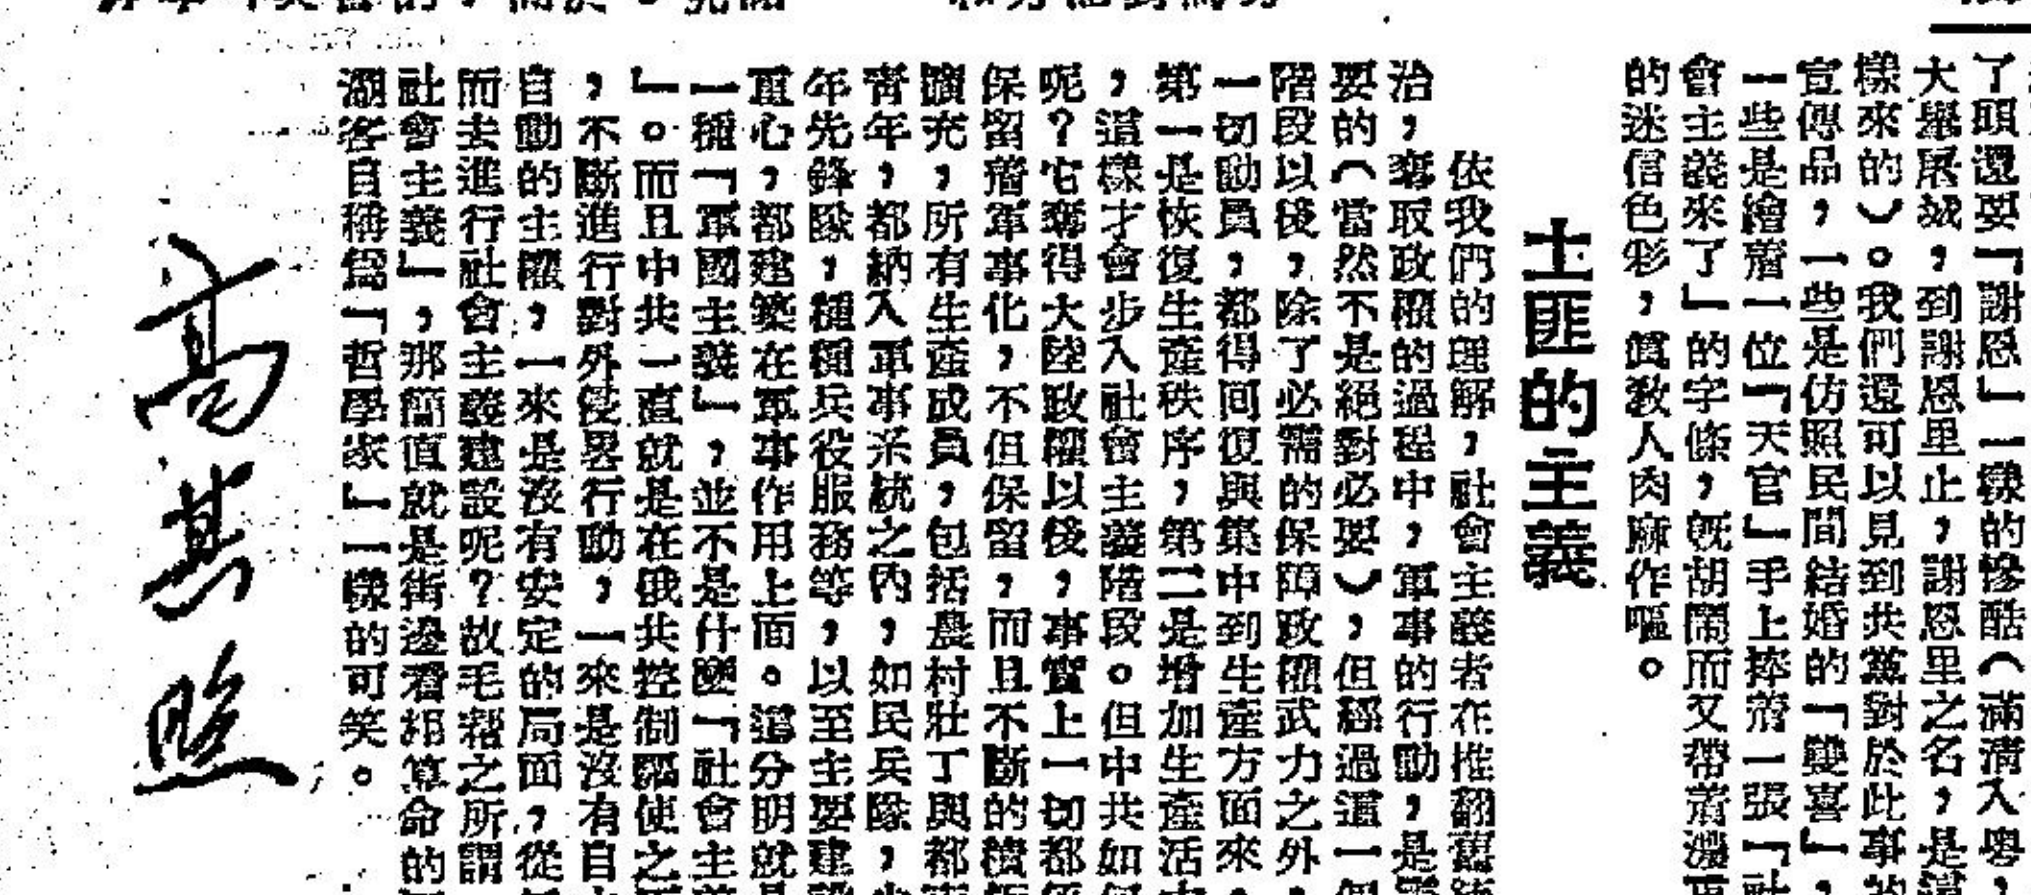 了頭還要「謝恩」一樣的慘酷（滿清入粵，
大舉屠城，到謝恩里止，謝恩里之名，是這
樣來的）。我們還可以見到共黨對於此事的
宣傳品，一些是仿照民間結婚的「雙喜」，
一些是繪着一位「天官」手上捧着一張「社
會主義來了」的字條，旣胡鬧而又帶着濃
的迷信色彩，眞敎人肉麻作嘔。
土匪的主義
依我們的理解，社會主義者在推翻舊統
治，奪取政權的過程中，軍事的行動，是需
要的（當然不是絕對必要），但經過這一個
階段以後，除了必需的保障政權武力之外，
一切動員，都得回復與集中到生產方面來，
第一是恢復生產秩序，第二是增加生產活
，這樣才會步入社會主義階段。但中共如何
呢？它奪得大陸政權以後，事實上一切都
保留着軍事化，不但保留，而且不斷的積
擴充，所有生產成員，包括農村壯丁與都
靑年，都納入軍事系統之內，如民兵隊，少
年先鋒隊，種種兵役服務等，以至主要建設
重心，都建築在軍事作用上面。這分明就是
一種「軍國主義」，並不是什麼「社會主義
」。而且中共一直就是在俄共控制驅使之
，不斷進行對外侵畧行動，一來是沒有自
自動的主權，一來是沒有安定的局面，從
而去進行社會主義建設呢？故毛之所謂
社會主義」，那簡直就是街邊看相算命的
湖客自稱爲「哲學家」一樣的可笑。
高其照